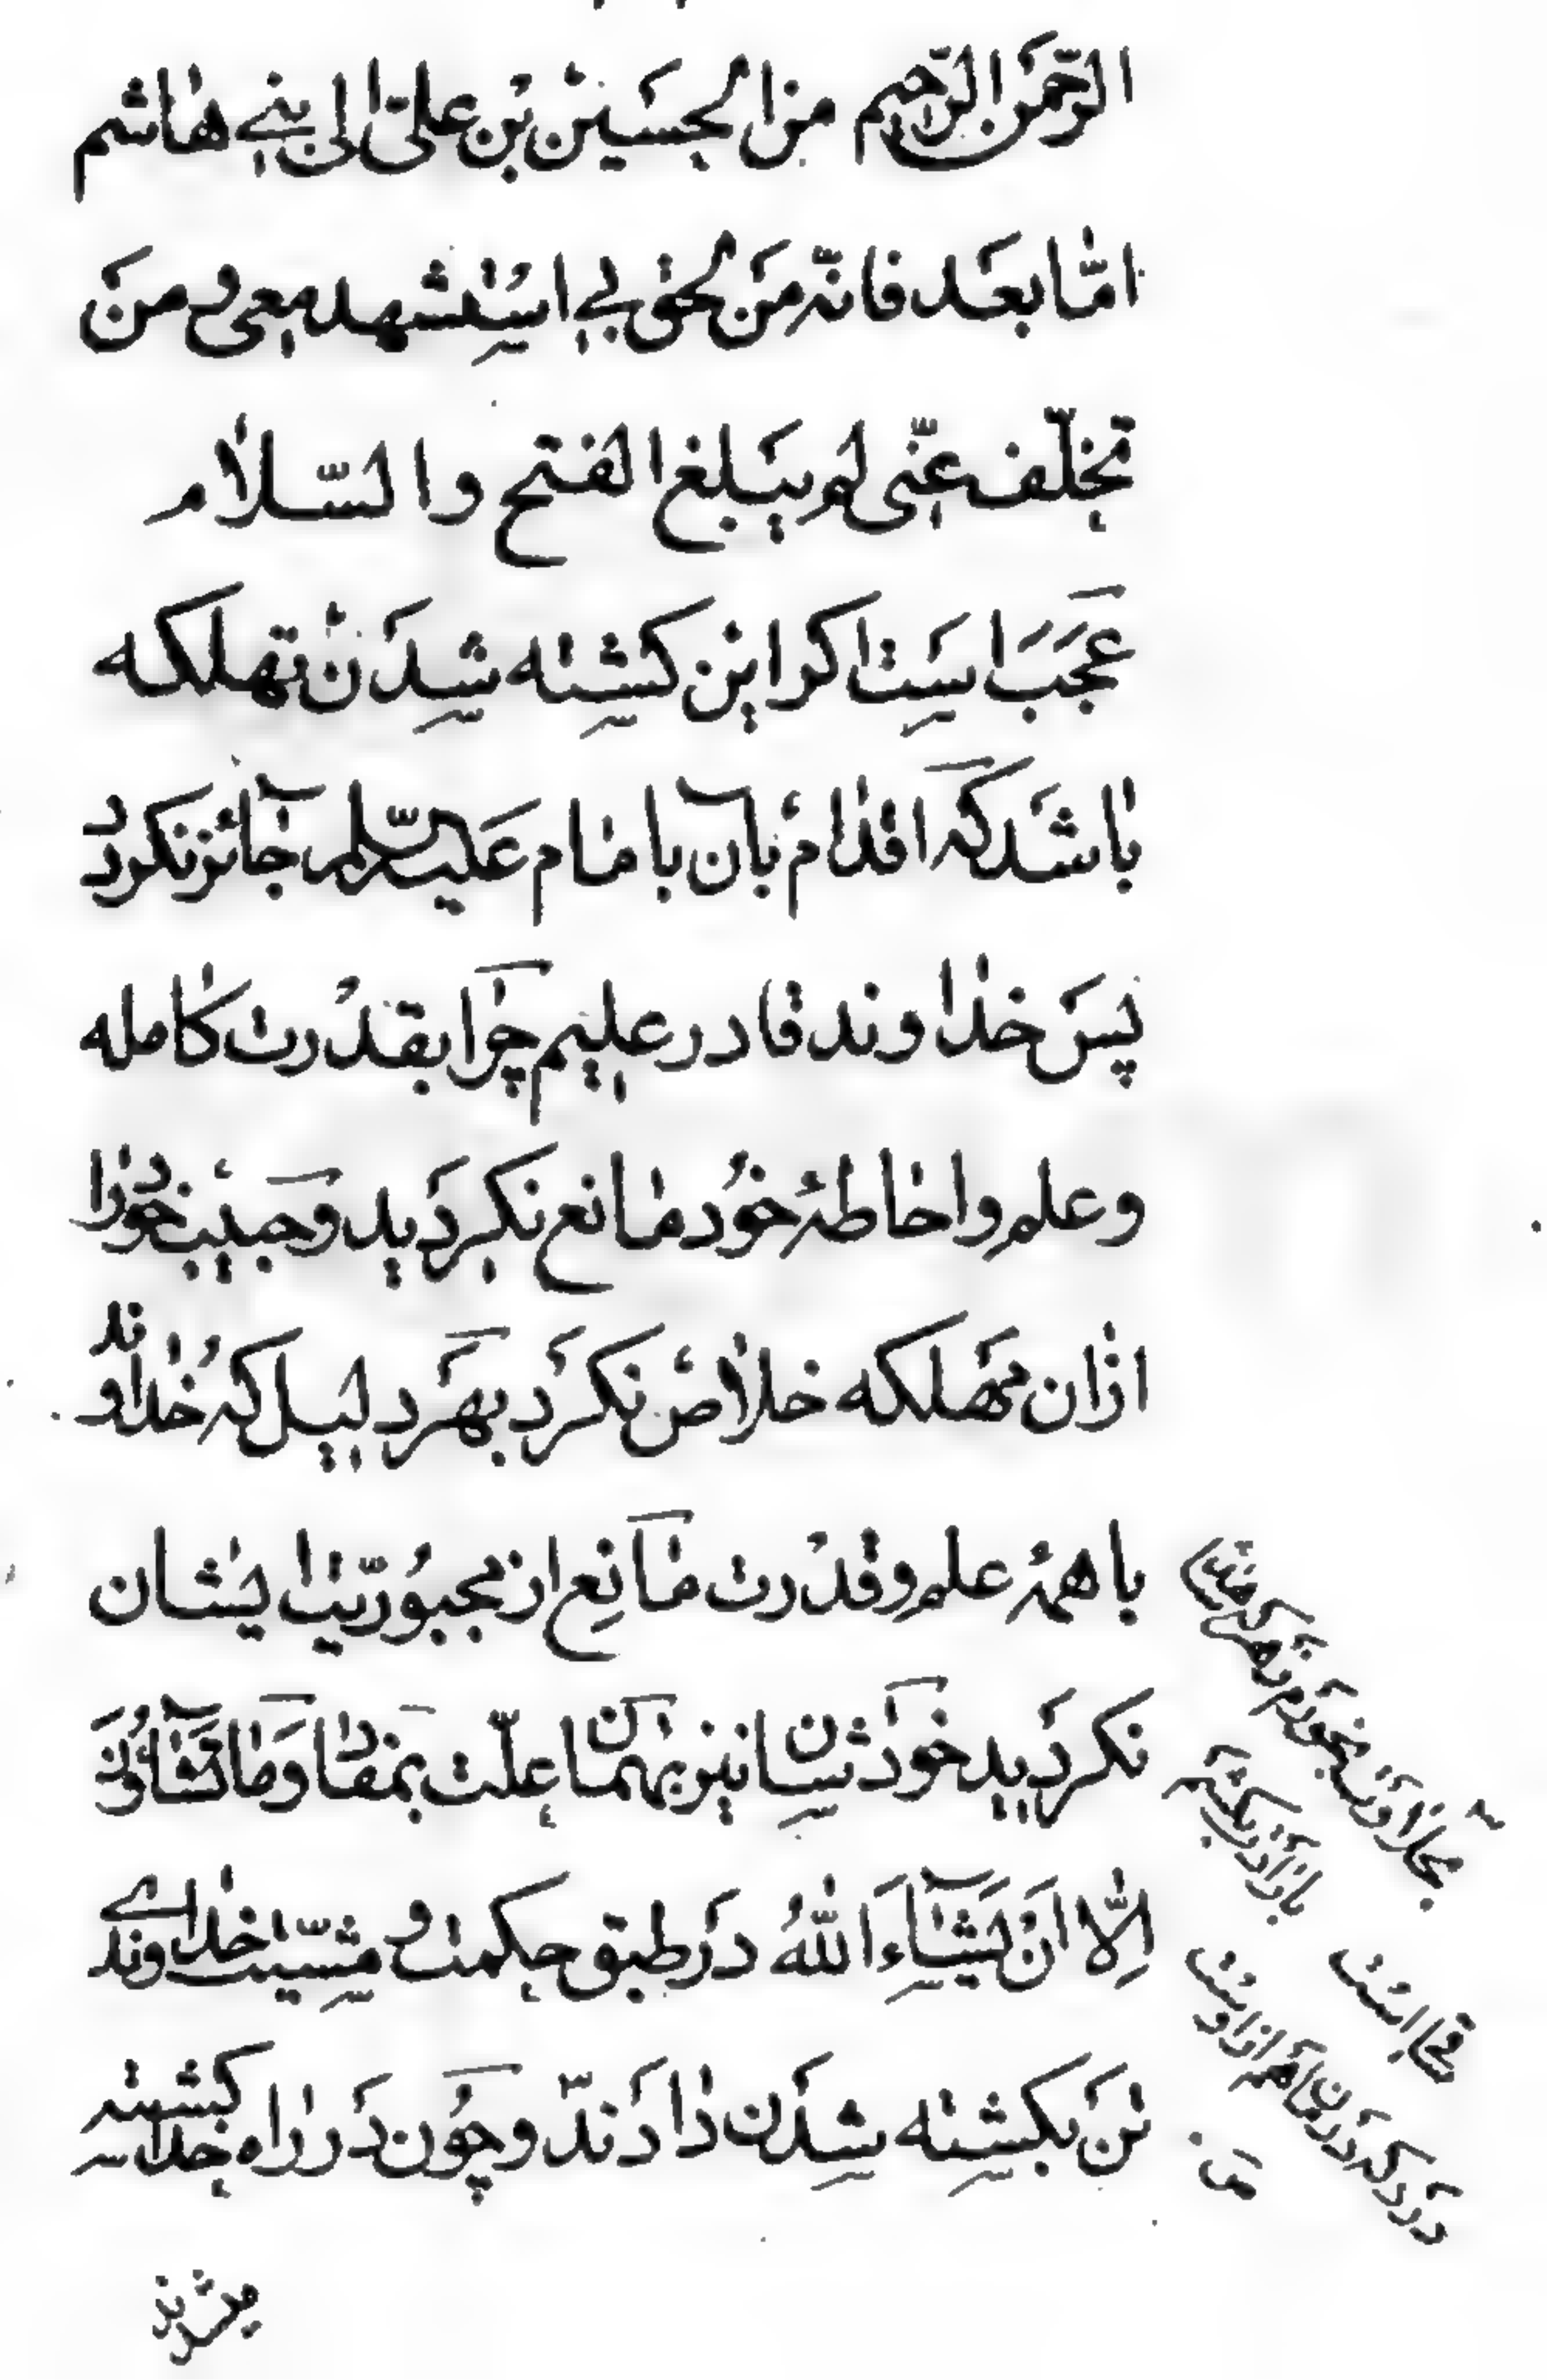 الرّحمن الرّحیم من الحسین بن علیّ الی بنی هاشم
امّا بعد فانّه من لحق بی استشهد معی و من
تخلّف عنّی لم یبلغ الفتح والسّلام
عجب است اگر این کشته شدن تهلکه
باشد که اقدام بآن بامام علیه السّلام جائز نگردد
پس خداوند قادر علیم چرا بقدرت کامله
و علم و احاطهٔ خود مانع نگردید و حبیب خود را
از آن مهلکه خلاص نکرد بهر دلیل که خداوند
با همهٔ علم و قدرت مانع از مجبوریّت ایشان
نگردید خودشان نیز بهمان علّت بمفاد وَما تَشاؤُنَ
اِلّا اَنْ یَشآءَ اللهُ در طبق حکمت و مشیّت خداوندی
تن بکشته شدن دادند و چون در راه خدا کشته
بحلاوت بخورم زهر که شاهد
ساقی است
بارادت بکشم
درد که درمان هم از اوست
میشوند